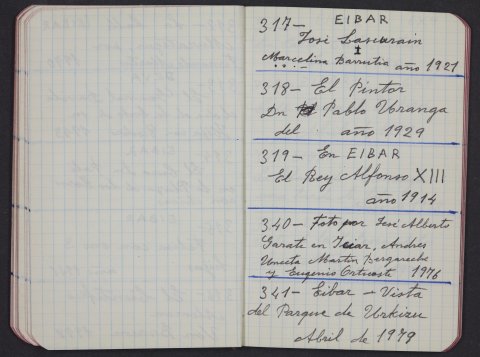 317— EIBAR
José Lascurain
I
Marcelina Barrutia año 1921
318— El Pintor
Dn Pablo Uranga
del año 1929
319— En EIBAR
El Rey Alfonso XIII
año 1914
340— Foto por José Alberto
Garate en Iciar, Andres
Uneeta Martin Bergareche
y Eugenio Ortueste 1976
341— Eibar — Vista
del Parque de Urkizu
Abril de 1979